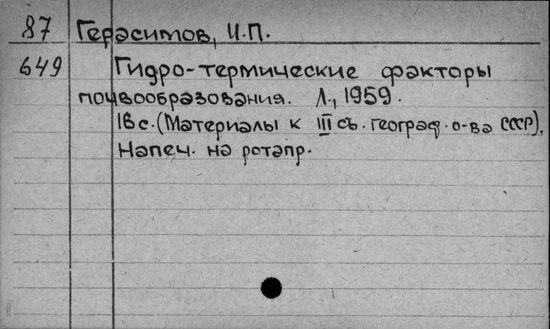 87 Герасимов, И.П.
649 Гидро-термические факторы
почвообразования. Л., 1959.
16с. (Материалы к III съ. географ. о-ва СССР).
Напеч. на ротапр.